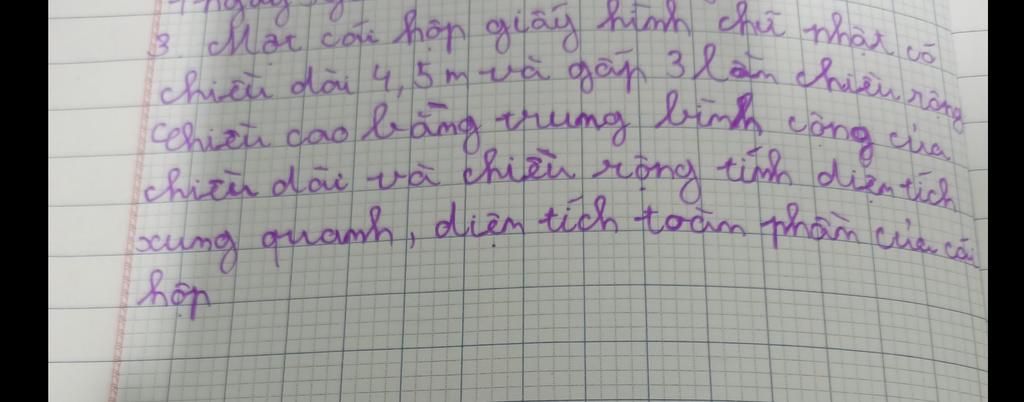 3. Một cái hộp giấy hình chữ nhật có
chiều dài 4,5m và gấp 3 lần chiều rộng
chiều cao bằng trung bình cộng của
chiều dài và chiều rộng tính diện tích
xung quanh, diện tích toàn phần của cái
hộp